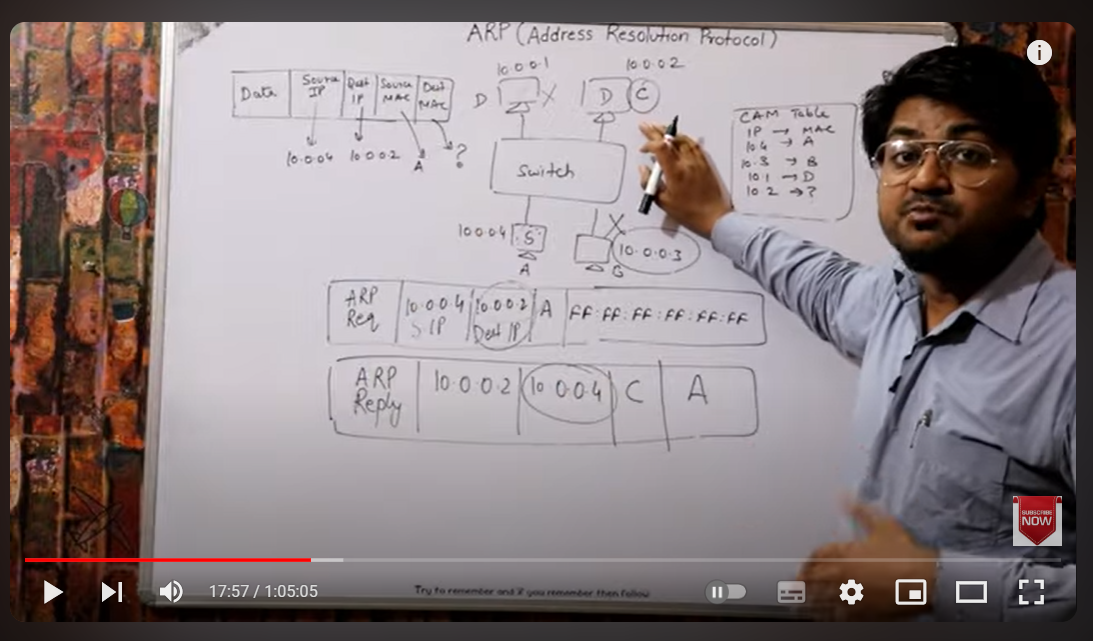 ARP (Address Resolution Protocol)
10.0.0.1
10.0.0.2
Data
Source IP
Dest IP
Source MAC
Dest MAC
10.0.0.4
10.0.0.2
A
?
D
X
D
C
Switch
10.0.0.4
S
A
X
10.0.0.3
B
CAM Table
IP → MAC
10.4 → A
10.3 → B
10.1 → D
10.2 → ?
ARP Req
10.0.0.4
S IP
10.0.0.2
Dest IP
A
FF:FF:FF:FF:FF:FF
ARP Reply
10.0.0.2
10.0.0.4
C
A
SUBSCRIBE
NOW
i
17:57 / 1:05:05
Try to remember and if you remember then follow